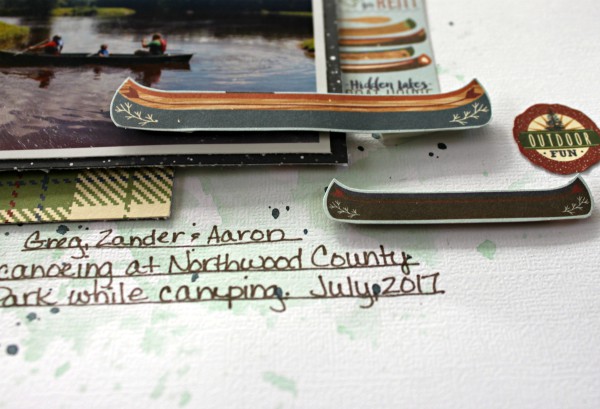 for RENT
Hidden Lakes
BOAT HOUSE
OUTDOOR
FUN
Greg, Zander & Aaron
canoeing at Northwood County
Park while camping. July, 2017